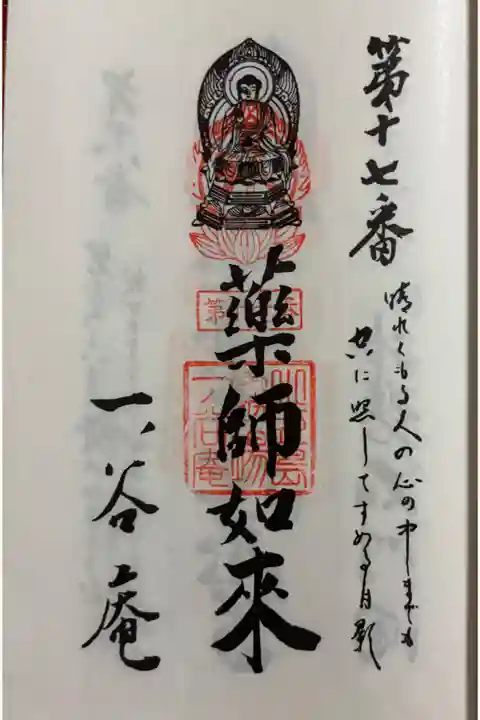 第十七番
晴れくもる人の心の中までも
空に照してすめる月影
藥師如來
第
一ノ谷庵